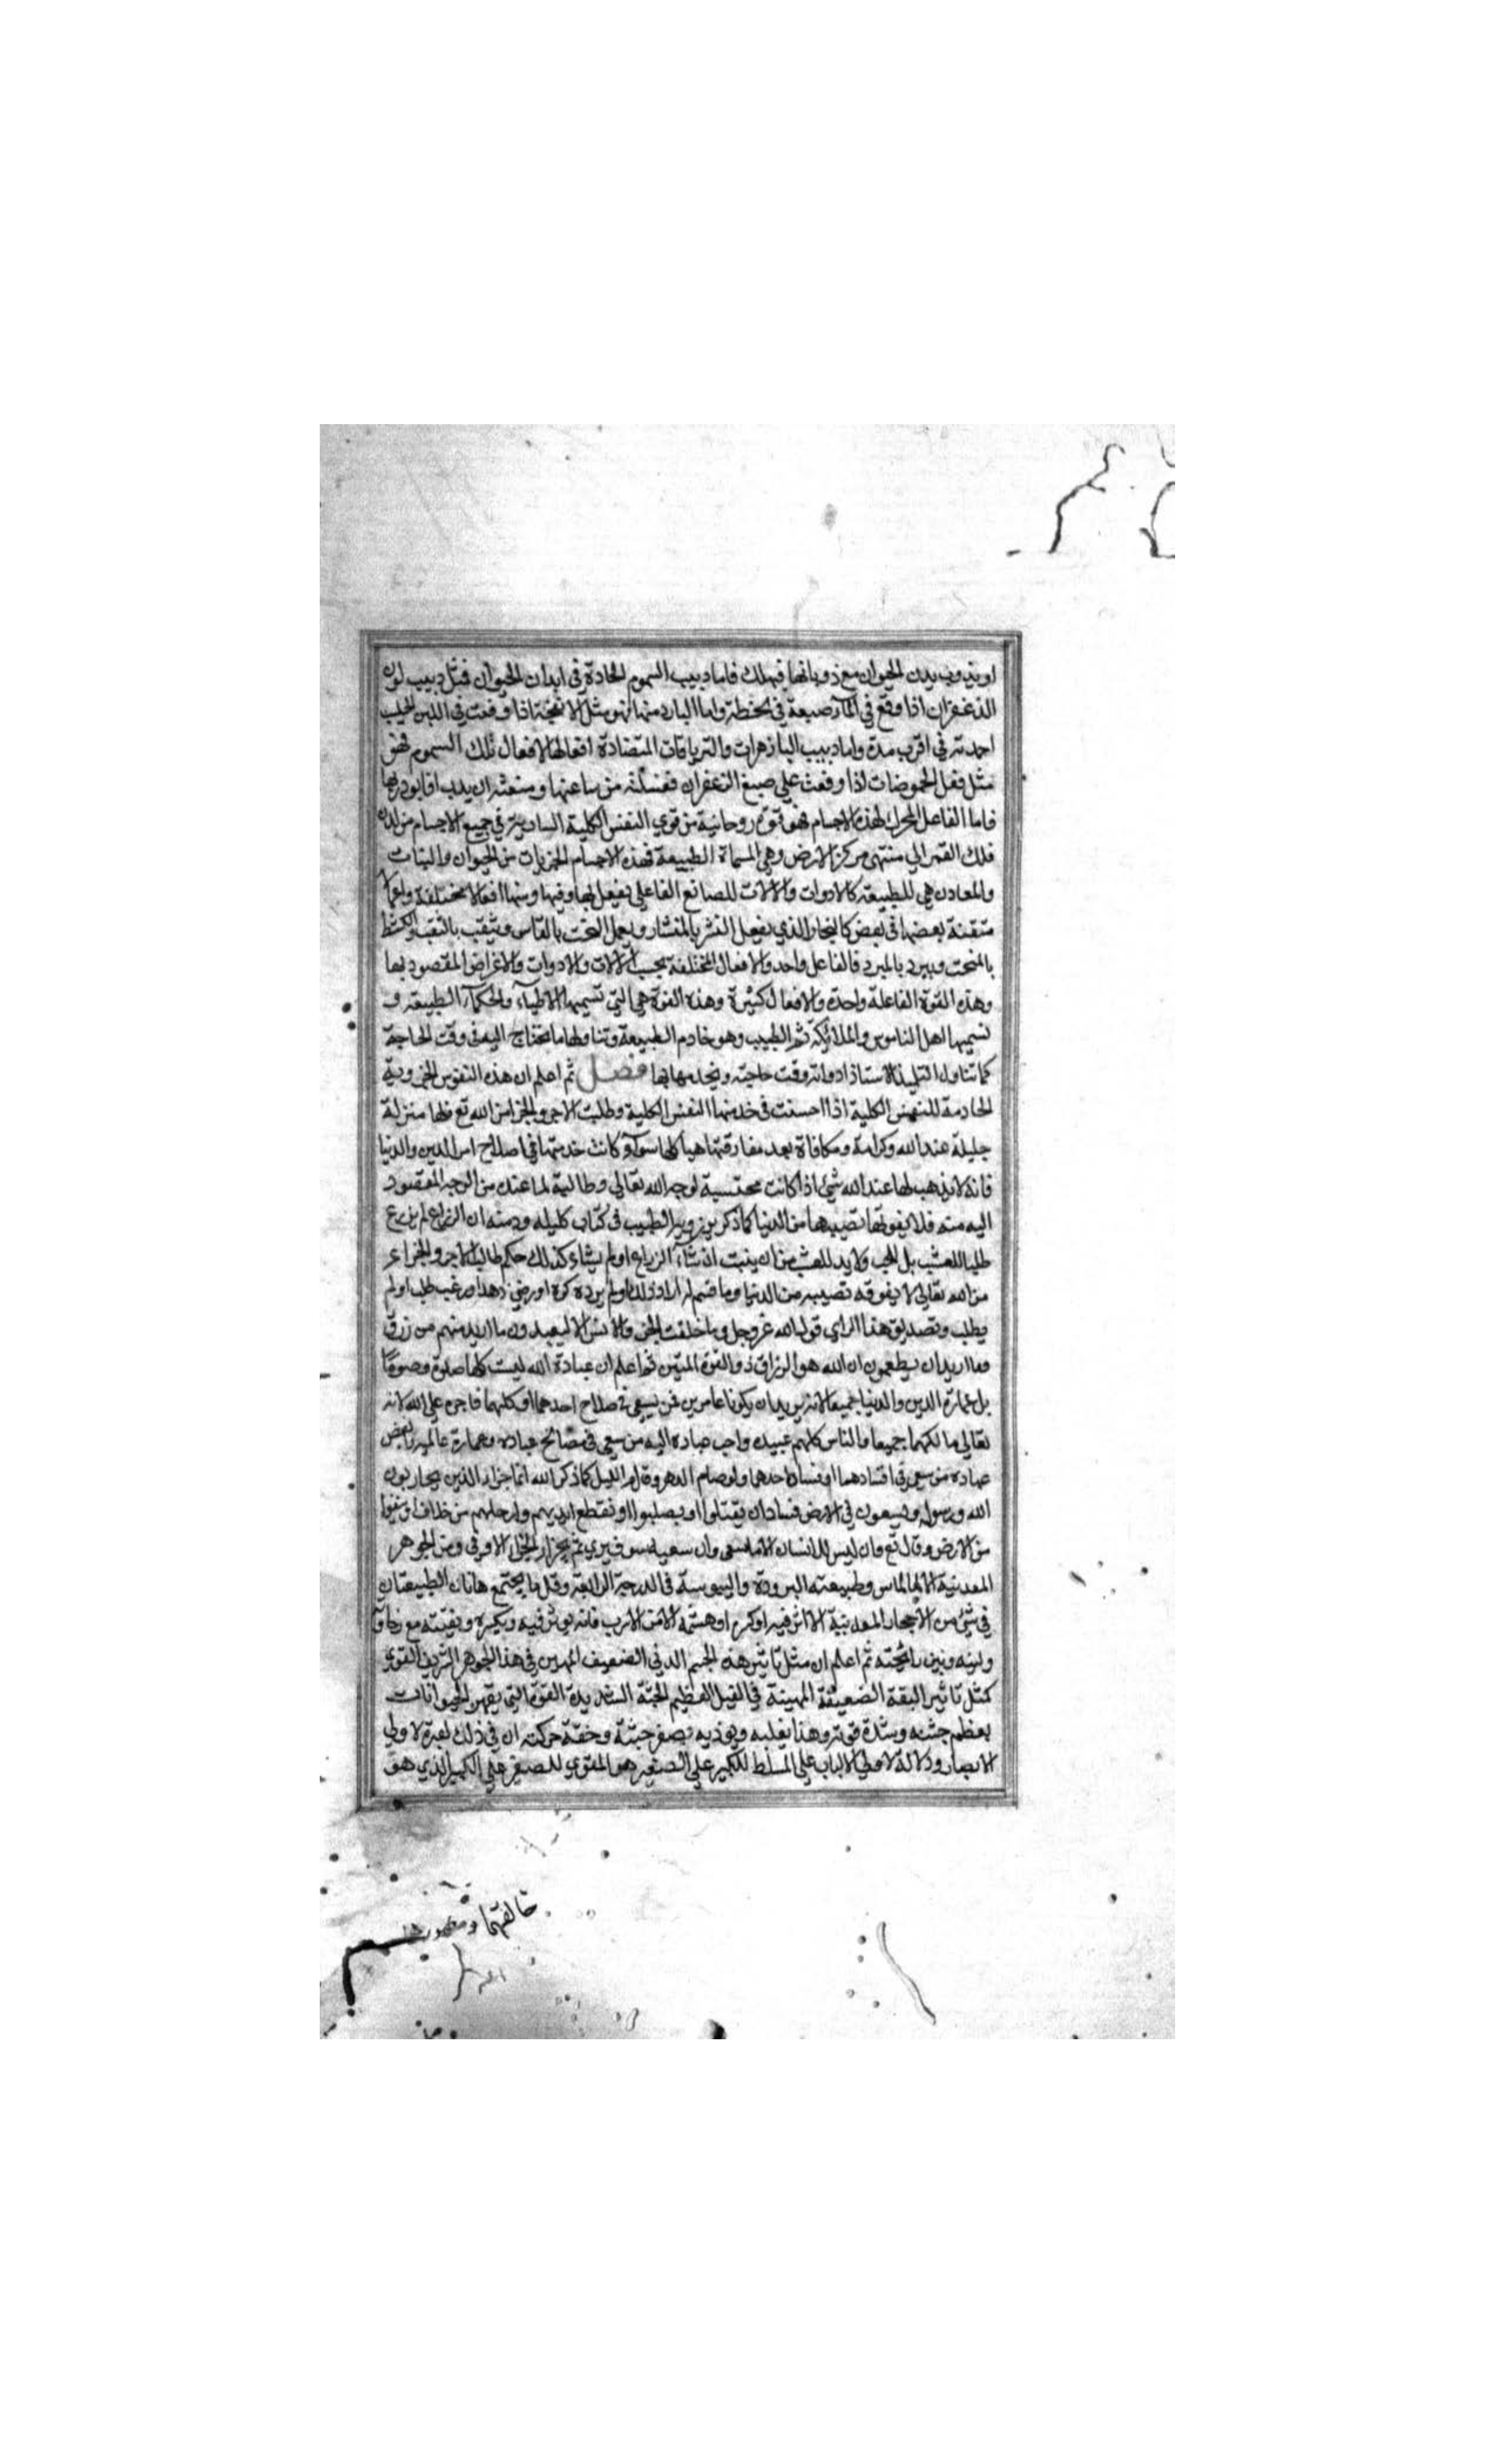 او يذوب بدن الحيوان مع ذوبانها فيهلك فاما دبيب السموم الحادة في ابدان الحيوان فمثل دبيب لون
الزعفران اذا وقع في المآء صبغة في لحظة واما البارد منها فهو مثل الانفحة اذا وقعت في اللبن الحليب
اجمدته في اقرب مدة واما دبيب البازهرات والترياقات المتضادة افعالها لافعال تلك السموم فهو
مثل فعل الحموضات اذا وقعت علي صبغ الزعفران فغسلته من ساعتها ومنعته ان يدب
فاما الفاعل المحرك لهذه الاجسام فهو قوة روحانية من قوي النفس الكلية السارية في جميع الاجسام من لدن
فلك القمر الي منتهي مركز الارض وهي المسماة الطبيعة فهذه الاجسام الجزيات من الحيوان والنبات
والمعادن هي للطبيعة كالادوات والالات للصانع الفاعل يفعل بها وفيها ومنها افعالا مختلفة واعمالا
متقنة بعضها في بعض كالنجار الذي يفعل النشر بالمنشار ويعمل النحت بالفاس ويثقب بالثقب والكشط
بالمنحت ويبرد بالمبرد فالفاعل واحد والافعال المختلفة بحسب الآلات والادوات والاغراض المقصود بها
وهذه القوة الفاعلة واحدة والافعال كثيرة وهذه القوة هي التي تسميها الاطبآء والحكمآء الطبيعة و
تسميها اهل الناموس والملائكة ثم الطبيب وهو خادم الطبيعة وتناولها ما تحتاج اليه في وقت الحاجة
كما تناول التلميذ الاستاذ ادواته وقت حاجته ويخدمها بها فصل ثم اعلم ان هذه النفوس الجزوية
الخادمة للنفس الكلية اذا احسنت في خدمتها النفس الكلية وطلبت الاجر والجزا من الله تع فلها منزلة
جليلة عند الله وكرامة ومكافاة بعد مفارقتها هياكلها سوآء كانت خدمتها في اصلاح امر الدين والدنيا
فانه لا يذهب لها عند الله شئ اذا كانت محتسبة لوجه الله تعالي وطالبة لما عنده من الوجه المقصود
اليه منه فلا يفوتها نصيبها من الدنيا كما ذكر برزويه الطبيب في كتاب كليله ودمنه ان الزراع لم يزرع
طلبا للعشب بل للحب ولا بد للعشب من ان ينبت ان شآء الزراع او لم يشاء كذلك حكم طالب الاجر والجزاء
من الله تعالي لا يفوته نصيبه من الدنيا وما قسم له اراد ذلك او لم يرده كره او رضي زهد او رغب طلب او لم
يطلب وتصديق هذا الراي قول الله عز وجل وما خلقت الجن والانس الا ليعبدون ما اريد منهم من رزق
وما اريد ان يطعمون ان الله هو الرزاق ذو القوة المتين ثم اعلم ان عبادة الله ليست كلها صلوة وصوما
بل عمارة الدين والدنيا جميعا لانه يريد ان يكونا عامرين فمن يسعي في صلاح احدهما او كليهما فاجره علي الله لانه
تعالي مالكهما جميعا والناس كلهم عبيده واحب عباده اليه من سعي في مصالح عباده وعمارة عالميه وابغض
عباده من سعي في افسادهما او فساد احدهما ولو صام الدهر وقام الليل كما ذكر الله انما جزاء الذين يحاربون
الله ورسوله ويسعون في الارض فسادا ان يقتلوا او يصلبوا او تقطع ايديهم وارجلهم من خلاف او ينفوا
من الارض وقال تع وان ليس للانسان الا ما سعي وان سعيه سوف يري ثم يجزاه الجزاء الاوفي ومن الجوهر
المعدنية الالماس وطبيعته البرودة واليبوسة في الدرجة الرابعة وقل ما يجتمع هاتان الطبيعتان
في شئ من الاحجار المعدنية الا اثر فيه او كسره او هشمه الا من الاسرب فانه يوثر فيه ويكسره ويفتته مع رخاوته
ولينه ونتن رائحته ثم اعلم ان مثل تاثير هذه الجسم الدني الضعيف المهين في هذا الجوهر الشريف القوي
كمثل تاثير البقة الضعيفة المهينة في الفيل العظيم الجثة الشديدة القوة التي يقهر الحيوانات
بعظم جثته وشدة قوته وهذا يغلبه ويوذيه بصغر جثته وخفة حركته ان في ذلك لعبرة لاولي
الابصار ودلالة لاولي الالباب علي المسلط للكبير علي الصغير هو المقوي للصغير علي الكبير الذي هو
خالقهما ومصورهما